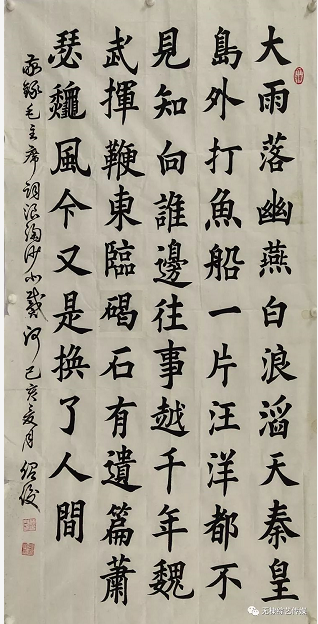 大雨落幽燕白浪滔天秦皇
島外打魚船一片汪洋都不
見知向誰邊往事越千年魏
武揮鞭東臨碣石有遺篇蕭
瑟龝風今又是換了人間
敬錄毛主席詞浪淘沙北戴河己亥夏月